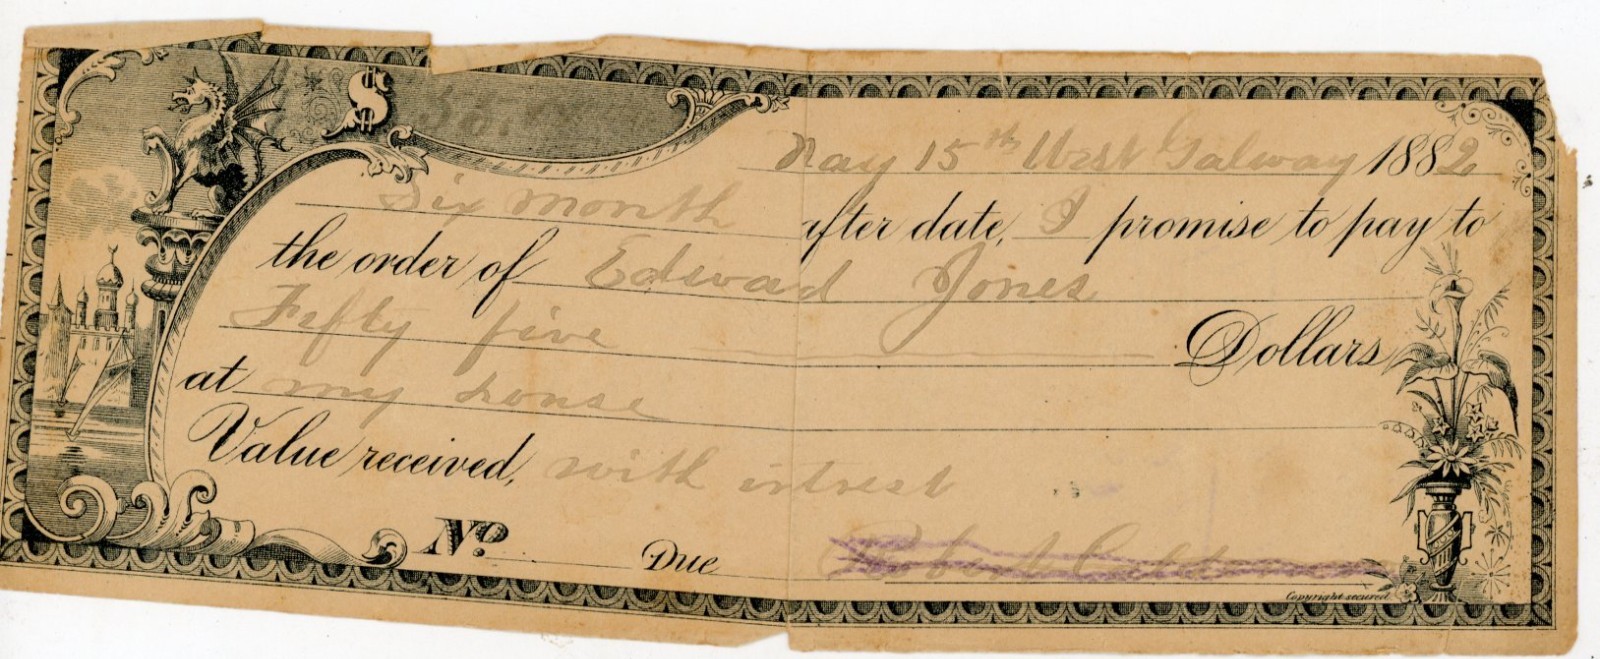 $ 55.
May 15th West Galway 1882
Six month after date, I promise to pay to
the order of Edward Jones
Fifty five Dollars
at my house
Value received, with intrest
No. Due Robert
Copyright secured.